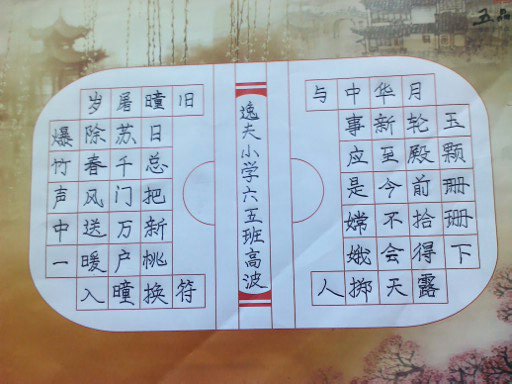 爆竹声中一
岁除春风送暖入
屠苏千门万户曈
曈日总把新桃换
旧符
逸夫小学六五班高波
玉颗珊珊下
月轮殿前拾得露
华新至今不会天
中事应是嫦娥掷
与人